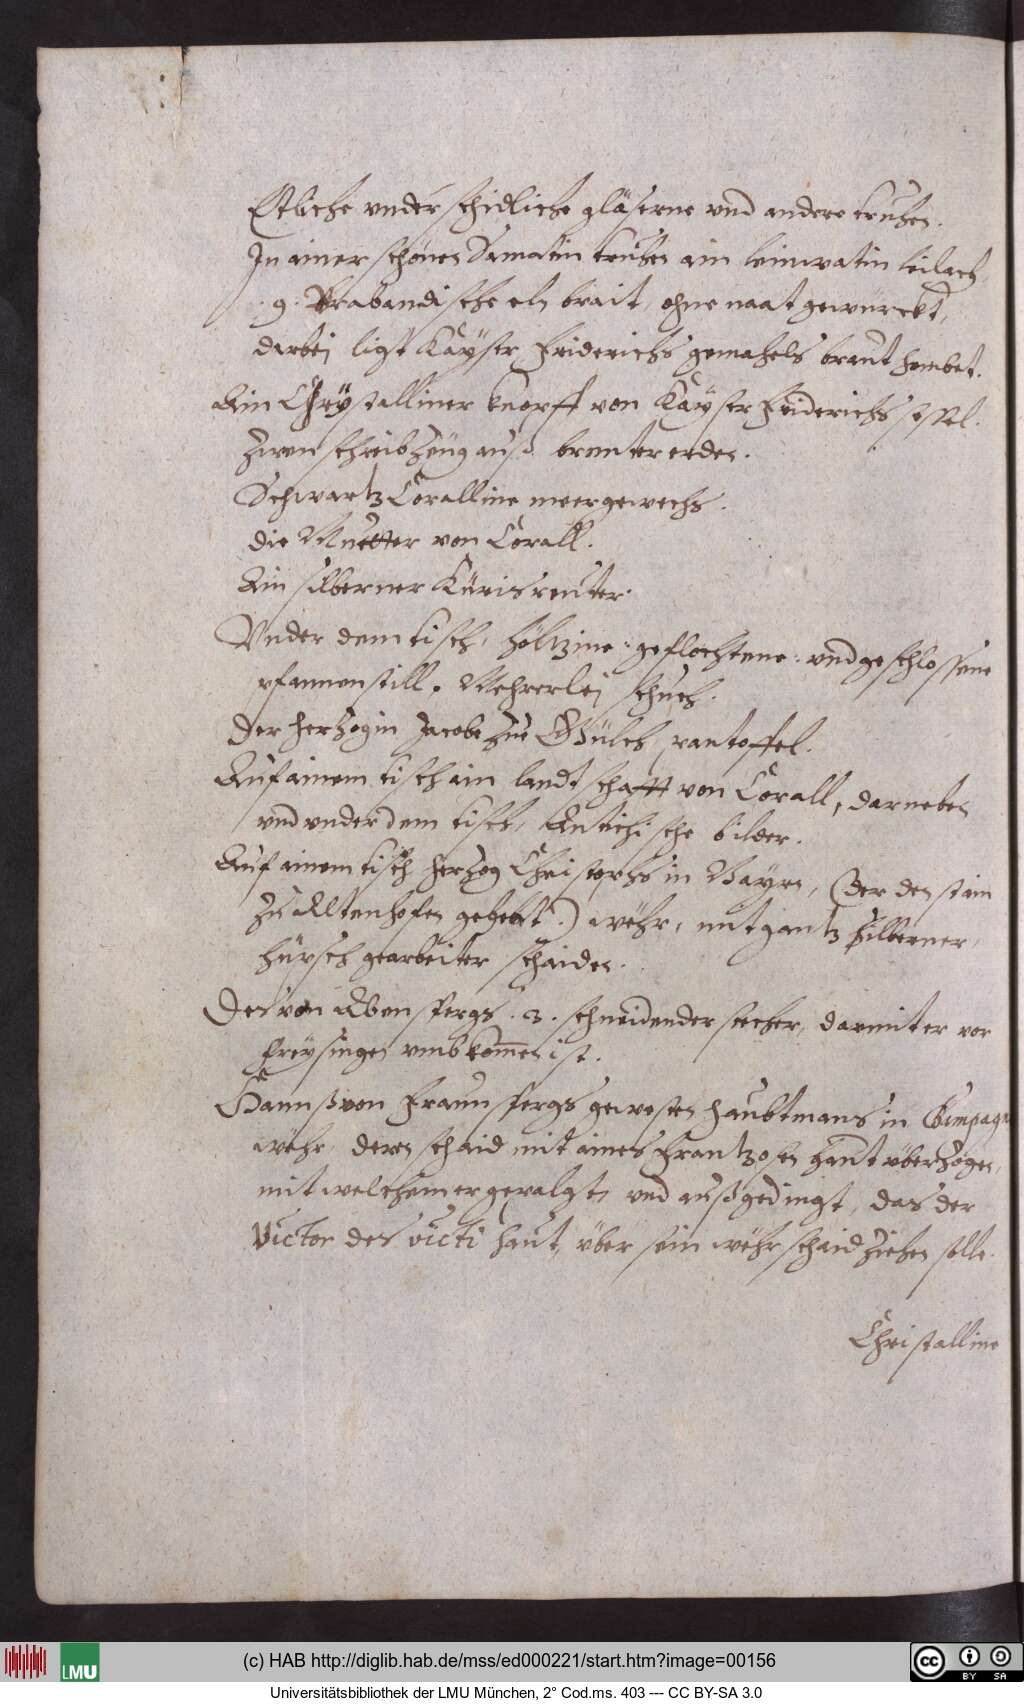 Etliche underschidliche gläserne und andere truhen.
In ainer schönen Damatin truhen ain leinwatin leilach
.9. Brabandische eln brait, ohne naat gewürckt,
darbei ligt Kaÿser Friderichs gemahels braut hembet.
Ain Chrÿstalliner knopff von Kaÿser Friderichs sessel.
Zwen schreibzeüg auß brenter erden.
Schwartz Coralline meergewechs.
die Muetter von Corall.
Ain silberner Kürisreuter.
Under dem tisch, höltzine: geflochtene: und geschlossene
pfannenstill. Mehrerlei schuch.
der herzogin Jacobe zue Gülch pantoffel.
Auf ainem tisch ain landtschafft von Corall, darneben
und under dem tisch, Antichische bilder.
Auf ainem tisch herzog Christophs in Bayrn, (der den stain
zu Altenhofen gehebt.) wöhr, mit gantz silberner,
hüpsch gearbeiter schaiden.
Des von Abenspergs .3. schneidender stecher, darmit er vor
freÿsingen umbkommen ist.
Hannß von Fraunspergs gewesten haubtmans in Campagn
wöhr, deren schaid mit aines Frantzosen haut überzogen,
mit welchem er gepalgt, und außgedingt, das der
Victor des victi haut, über sein wöhr schaid ziehen solle.
Christalline
(c) HAB http://diglib.hab.de/mss/ed000221/start.htm?image=00156
LMU
cc BY SA
Universitätsbibliothek der LMU München, 2° Cod.ms. 403 --- CC BY-SA 3.0